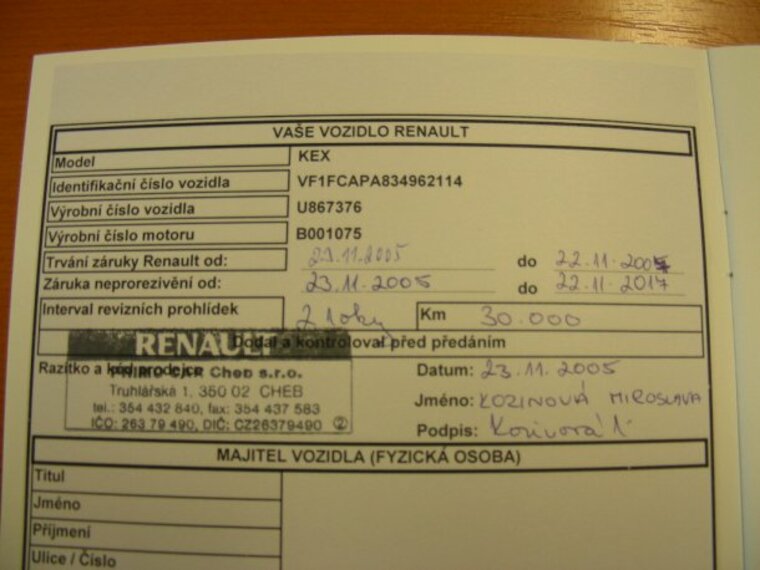 VAŠE VOZIDLO RENAULT
Model KEX
Identifikační číslo vozidla VF1FCAPA834962114
Výrobní číslo vozidla U867376
Výrobní číslo motoru B001075
Trvání záruky Renault od: 23.11.2005 do 22.11.2007
Záruka neprorezivění od: 23.11.2005 do 22.11.2017
Interval revizních prohlídek 2 roky Km 30.000
Dodal a kontroloval před předáním
RENAULT
Razítko a kód prodejce
PRIMO CAR Cheb s.r.o.
Truhlářská 1, 350 02 CHEB
tel.: 354 432 840, fax: 354 437 583
IČO: 263 79 490, DIČ: CZ26379490 ②
Datum: 23.11.2005
Jméno: KOZINOVÁ MIROSLAVA
Podpis: Kozinová
MAJITEL VOZIDLA (FYZICKÁ OSOBA)
Titul
Jméno
Příjmení
Ulice / Číslo